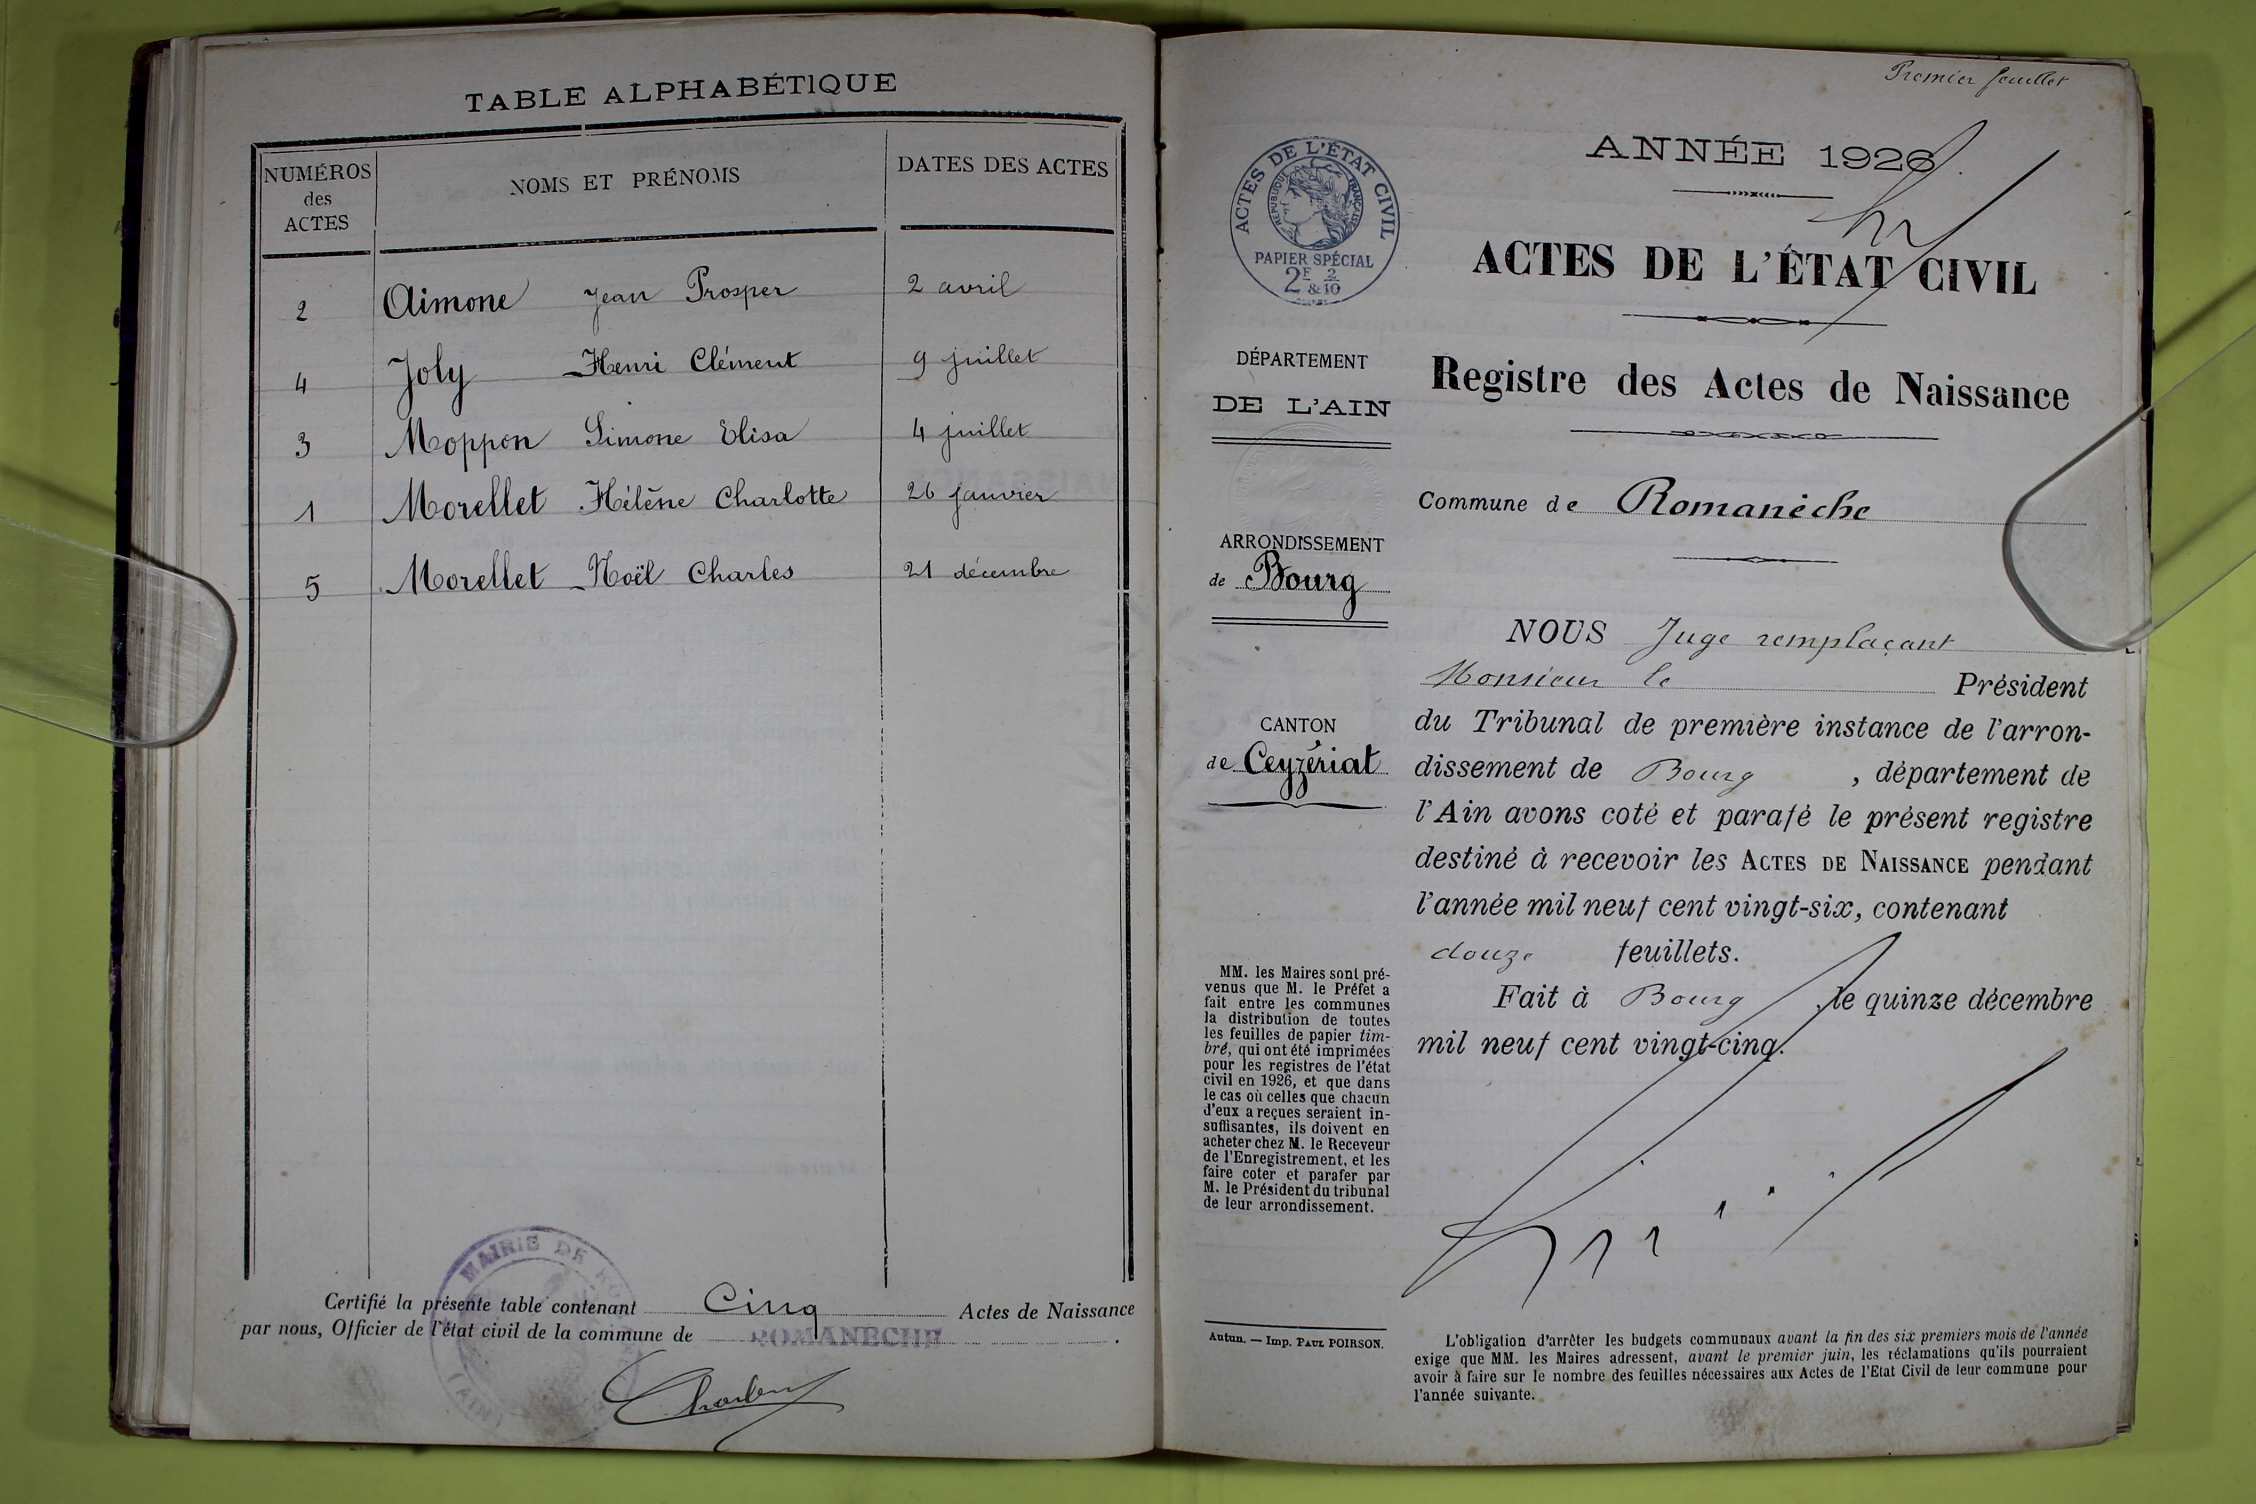 TABLE ALPHABÉTIQUE
NUMÉROS
des
ACTES
NOMS ET PRÉNOMS
DATES DES ACTES
2 Aimone Jean Prosper 2 avril
4 Joly Henri Clément 9 juillet
3 Moppon Simone Elisa 4 juillet
1 Morellet Hélène Charlotte 26 janvier
5 Morellet Noël Charles 21 décembre
MAIRIE DE
(AIN)
Certifié la présente table contenant Cinq Actes de Naissance
par nous, Officier de l'état civil de la commune de ROMANECHE.
Premier feuillet
ANNÉE 1926
ACTES DE L'ÉTAT CIVIL
RÉPUBLIQUE FRANÇAISE
PAPIER SPÉCIAL
2F & 2/10
ACTES DE L'ÉTAT CIVIL
Registre des Actes de Naissance
DÉPARTEMENT
DE L'AIN
Commune de Romanèche
ARRONDISSEMENT
de Bourg
CANTON
de Ceyzériat
NOUS Juge remplaçant
Monsieur le Président
du Tribunal de première instance de l'arron-
dissement de Bourg, département de
l'Ain avons coté et parafé le présent registre
destiné à recevoir les ACTES DE NAISSANCE pendant
l'année mil neuf cent vingt-six, contenant
douze feuillets.
Fait à Bourg, le quinze décembre
mil neuf cent vingt-cinq.
MM. les Maires sont pré-
venus que M. le Préfet a
fait entre les communes
la distribution de toutes
les feuilles de papier tim-
bré, qui ont été imprimées
pour les registres de l'état
civil en 1926, et que dans
le cas où celles que chacun
d'eux a reçues seraient in-
suffisantes, ils doivent en
acheter chez M. le Receveur
de l'Enregistrement, et les
faire coter et parafer par
M. le Président du tribunal
de leur arrondissement.
Autun. — Imp. PAUL POIRSON.
L'obligation d'arrêter les budgets communaux avant la fin des six premiers mois de l'année
exige que MM. les Maires adressent, avant le premier juin, les réclamations qu'ils pourraient
avoir à faire sur le nombre des feuilles nécessaires aux Actes de l'Etat Civil de leur commune pour
l'année suivante.